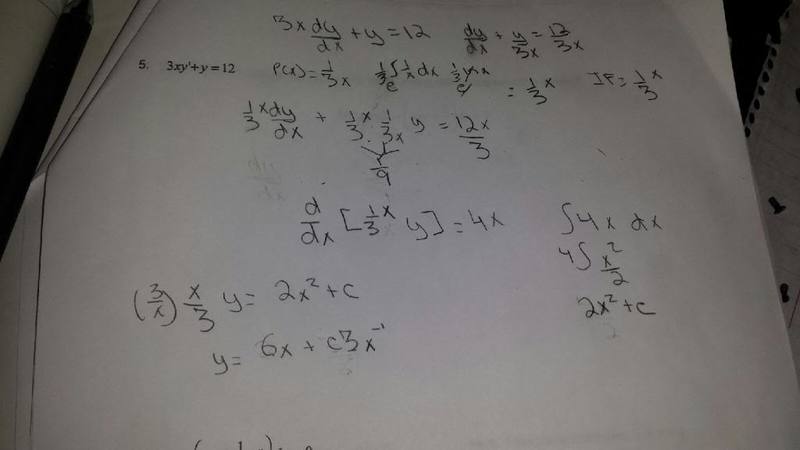 3x dy/dx + y = 12    dy/dx + y/3x = 12/3x
5. 3xy'+y=12    P(x) = 1/3x    e^(1/3 ∫ 1/x dx)    e^(1/3 ln x)    = 1/3 x    IF = 1/3 x
1/3 x dy/dx + 1/3 x · 1/3x y = 12x/3
1/9
d/dx [1/3 x y] = 4x    ∫4x dx
4∫ x²/2
(3/x) x/3 y = 2x² + c    2x² + c
y = 6x + c3x⁻¹